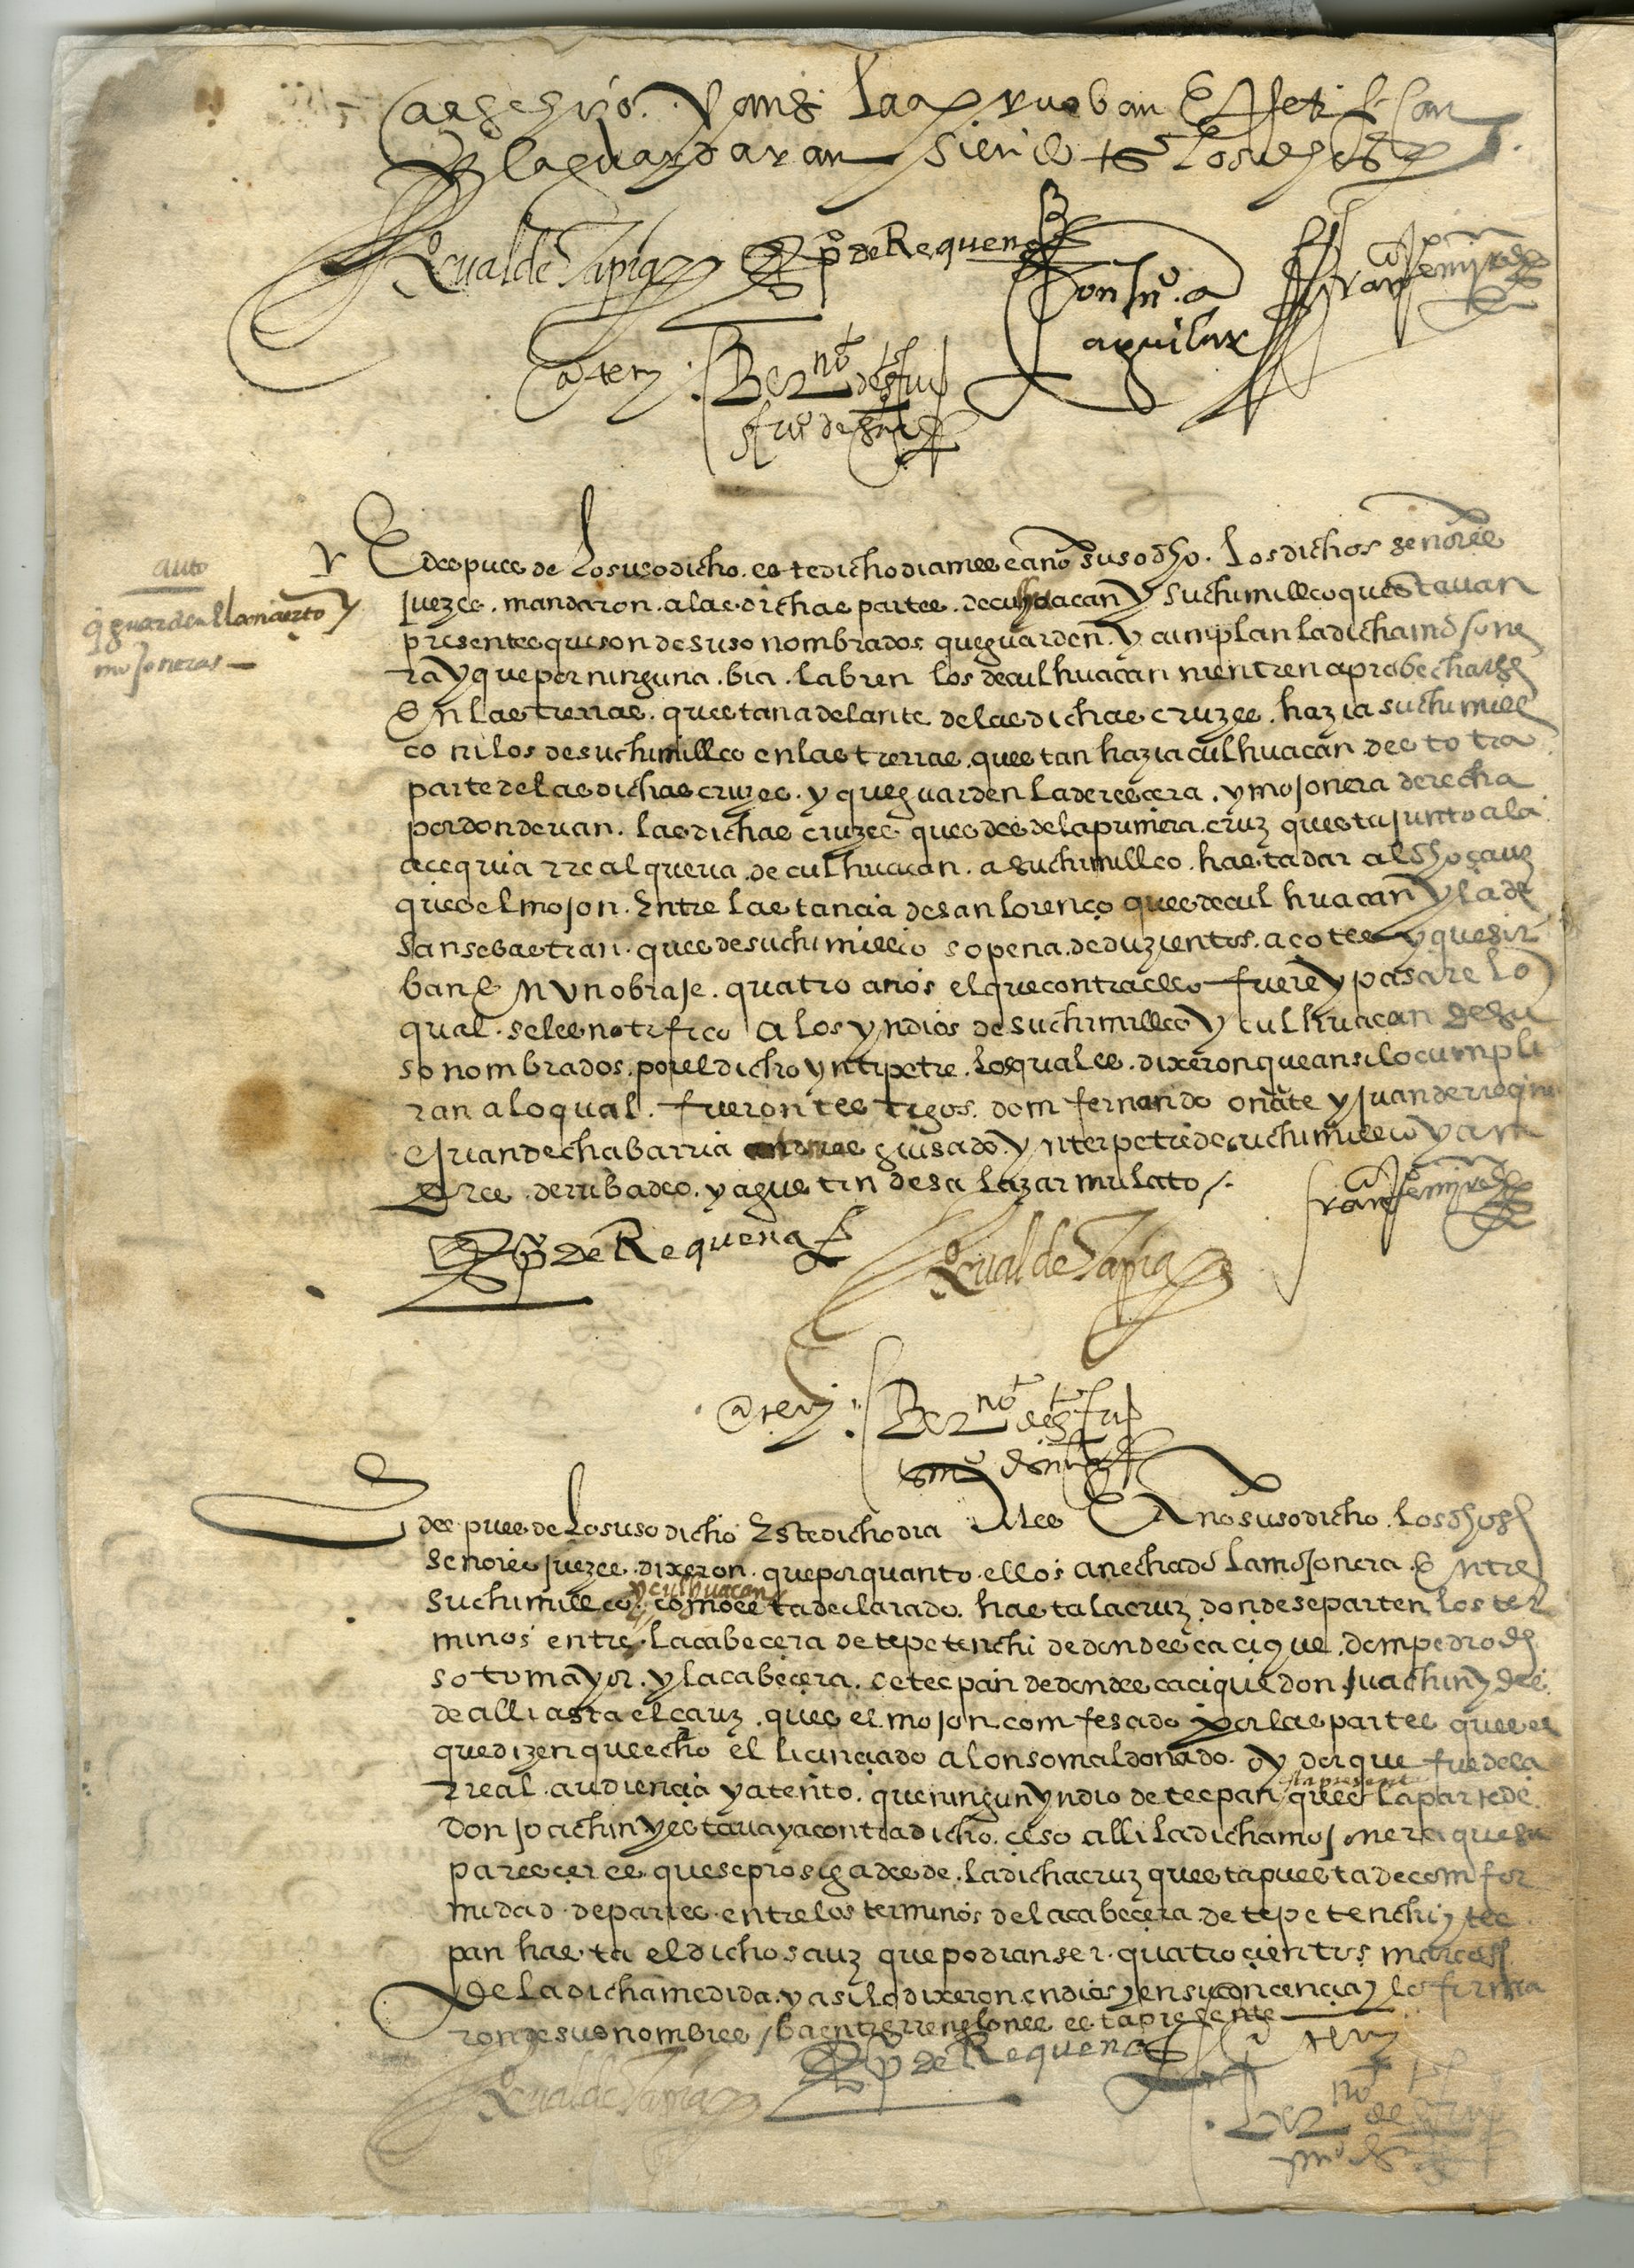 y la guardaran siendo tos los
Xpoual de Tapia
po de Requena
Don juo a
aguilar
franco
ante my
auto
q guarden
mojoneras
E despues de lo suso dicho este dicho dia mes e año suso dho los dichos señores
juezes mandaron a las dichas partes de culhuacan y suchimillco questauan
presentes que son de suso nombrados que guarden y cumplan la dicha mojone
ra y que por ninguna bia labren los de culhuacan ni entren aprobecharse
En las tierras questan adelante de las dichas cruzes hazia suchimill
co ni los de suchimillco en las tierras questan hazia culhuacan desto tra
parte de las dichas cruzes y que guarden la derescera y mojonera derecha
por donde van las dichas cruzes ques desde la primera cruz questa junto a la
acequia rreal que va de culhuacan a suchimillco hasta dar al dho çauz
ques el mojon Entre la stancia de san lorenço ques de culhuacan y la de
san sebastian ques de suchimillco so pena de duzientos açotes y que sir
ban En Vn obraje quatro años el que contra ello fuere y pasare lo
qual se les notifico a los yndios de suchimillco y culhuacan de su
so nombrados por el dicho yntrpetre los quales dixeron que ansi lo cumpli
ran a lo qual fueron testigos don fernando oñate y juan de
e juan dechabarria guisado ynterpetre de suchimillco y an
dres de ribadeo y agustin de salazar mulato
franco
po de Requena
Xpoual de Tapia
ante my
E despues de lo suso dicho Este dicho dia Mes E Año suso dicho los dhos
señores juezes dixeron que por quanto ellos an echado la mojonera Entre
y culhuacan
suchimillco como esta declarado hasta la cruz donde se parten los ter
minos entre la cabecera de tepetenchi de donde es cacique don pedro de
sotomayor y la cabecera de tecpan de donde es cacique don juachin y des
de alli asta el çauz ques el mojon confesado por las partes ques el
que dizen que echo el licinciado alonso maldonado oydor que fue de la
rreal audiencia y atento que ningun yndio de tecpan ques la parte de
esta presente
Don joachin y estaua ya contradicho ceso alli la dicha mojonera que su
parescer es que se prosiga desde la dicha cruz questa puesta de confor
midad de partes entre los terminos de la cabecera de tepetenchi y tec
pan hasta el dicho sauz que podian ser quatrocientos
De la dicha medida y asi lo dixeron en dios y en su concencia y lo firma
ron de sus nombres / ba entre rrenglones esta presente
po de Requena
ante my
Xpoual de Tapia